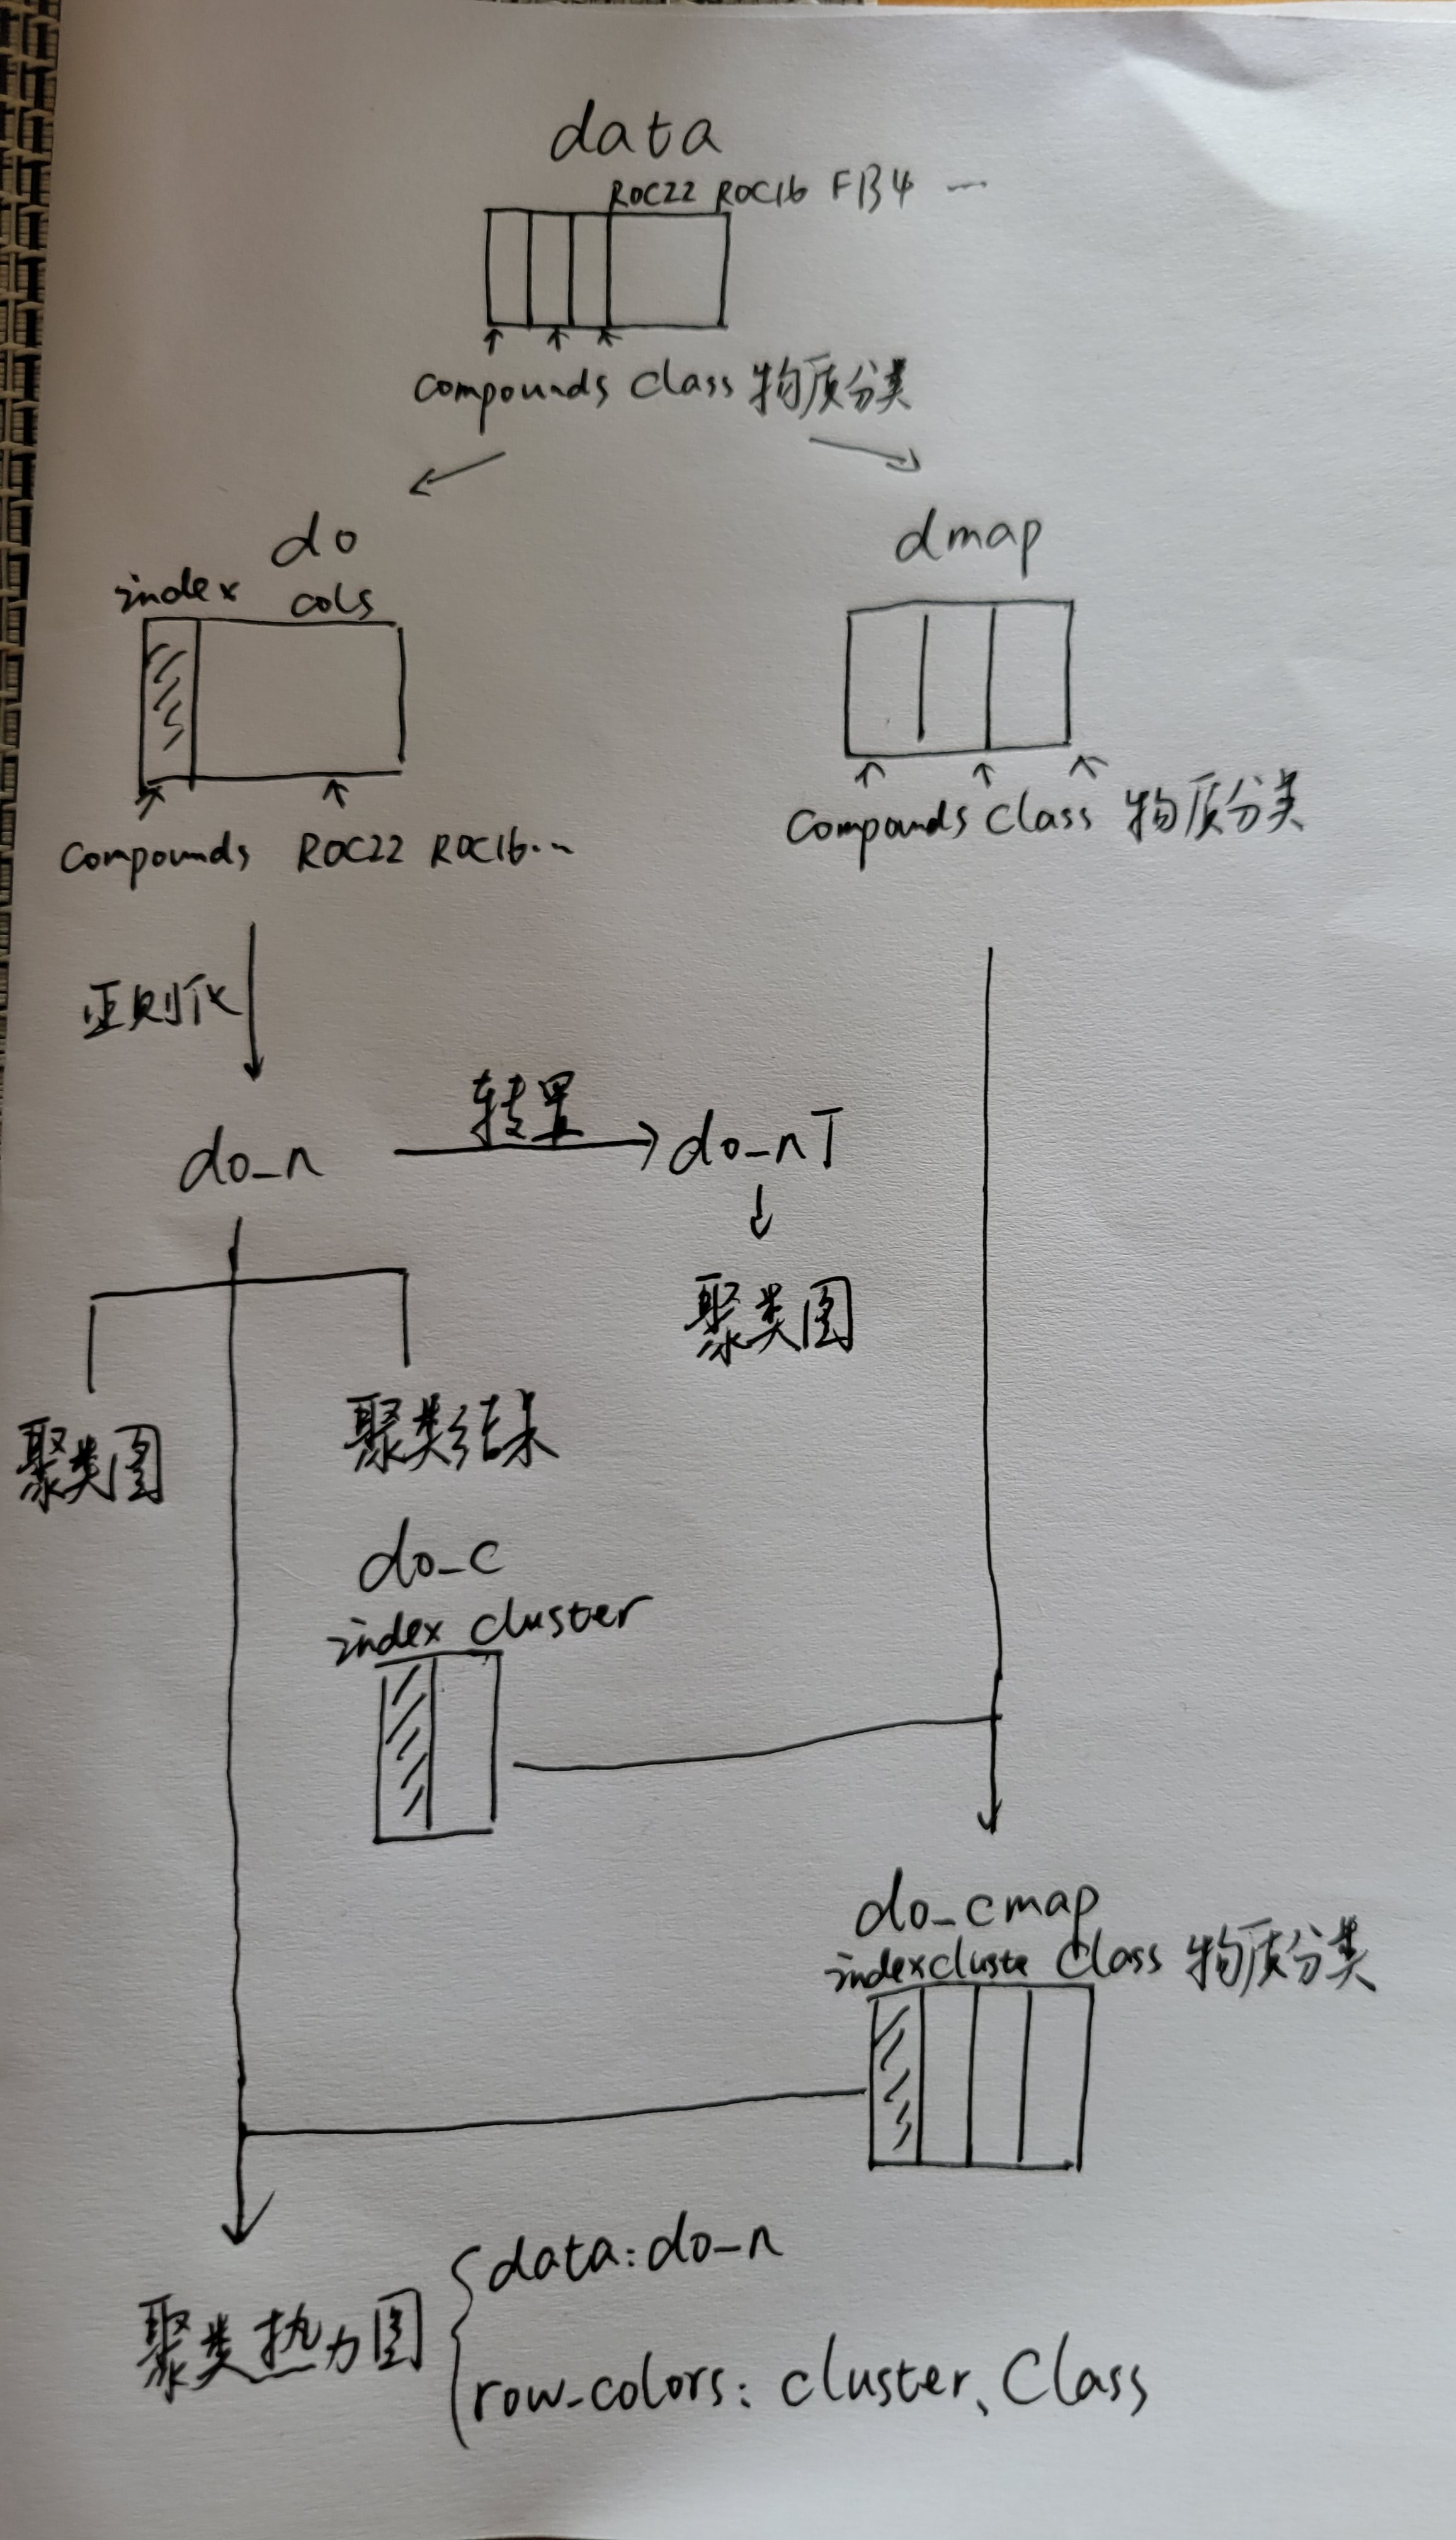 data
ROC22 ROC16 FB4 ...
compounds class 物质分类
do
index cols
compounds ROC22 ROC16...
dmap
compounds class 物质分类
正则化
do_n
转置
do_nT
聚类图
聚类图
聚类结果
do_c
index cluster
do_cmap
index cluste Class 物质分类
聚类热力图
data: do_n
row_colors: cluster、Class